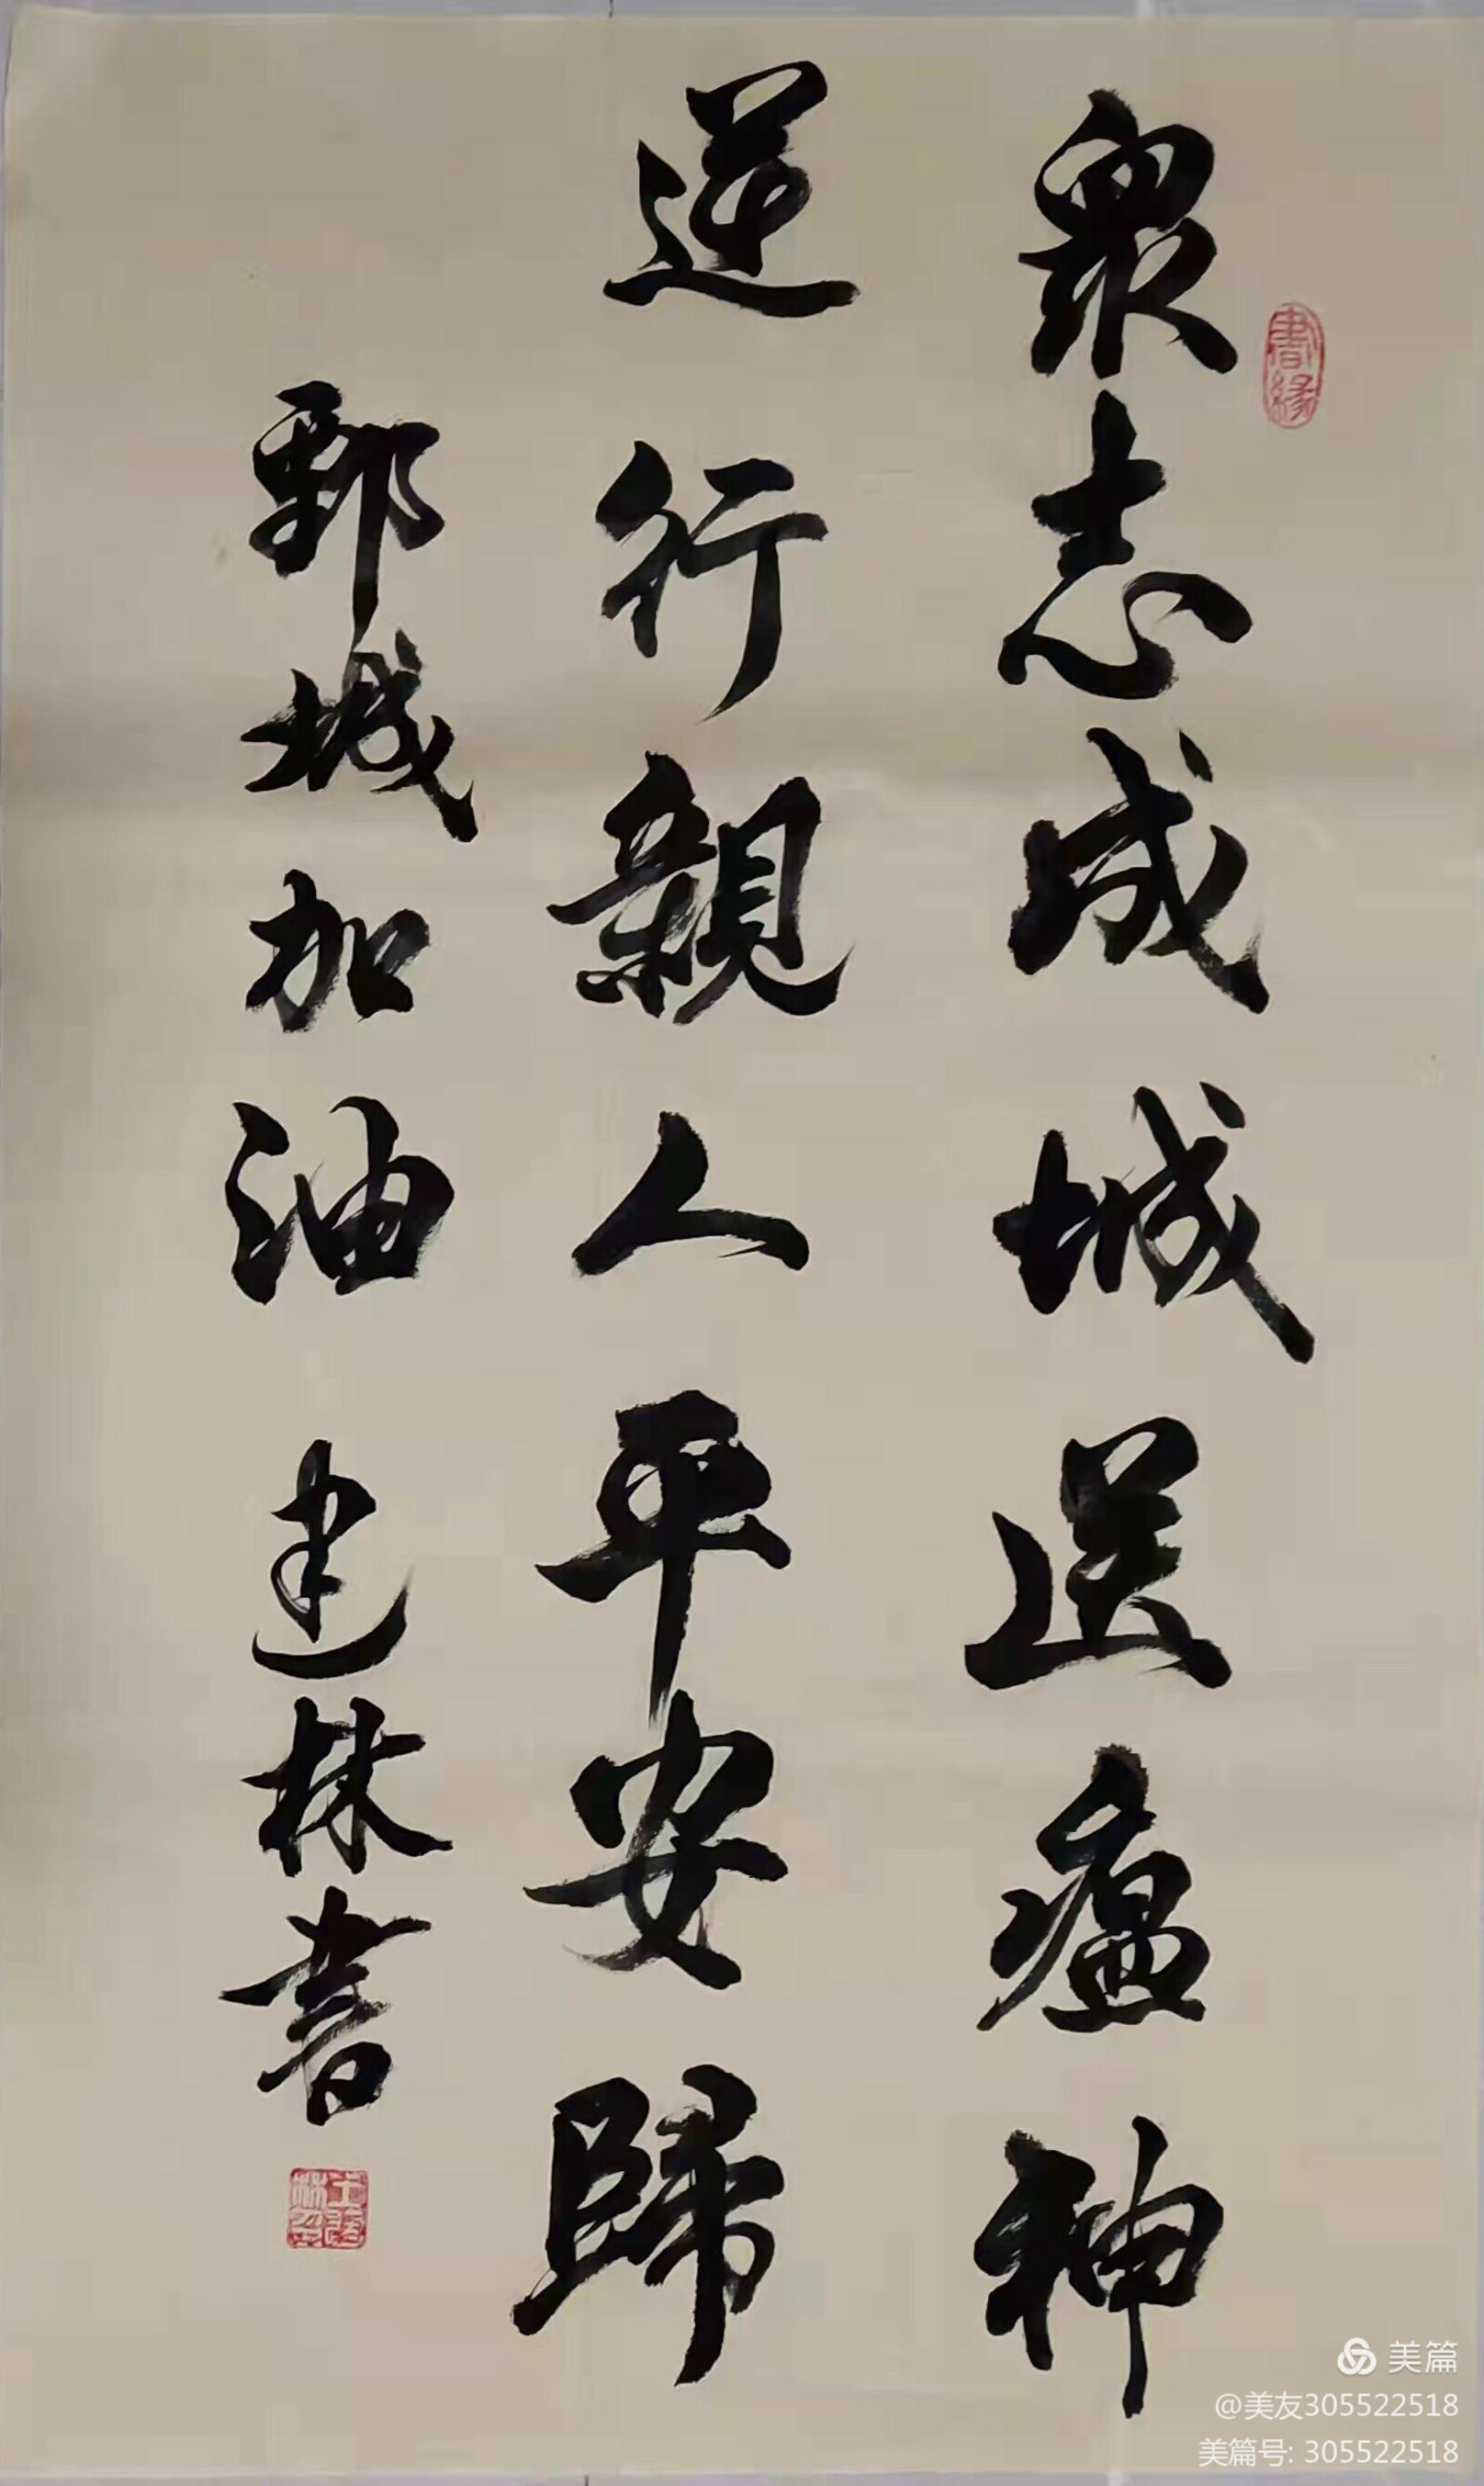 眾志成城送瘟神
逆行親人平安歸
鄄城加油 建林書
書緣
美篇
@美友305522518
美篇号: 305522518